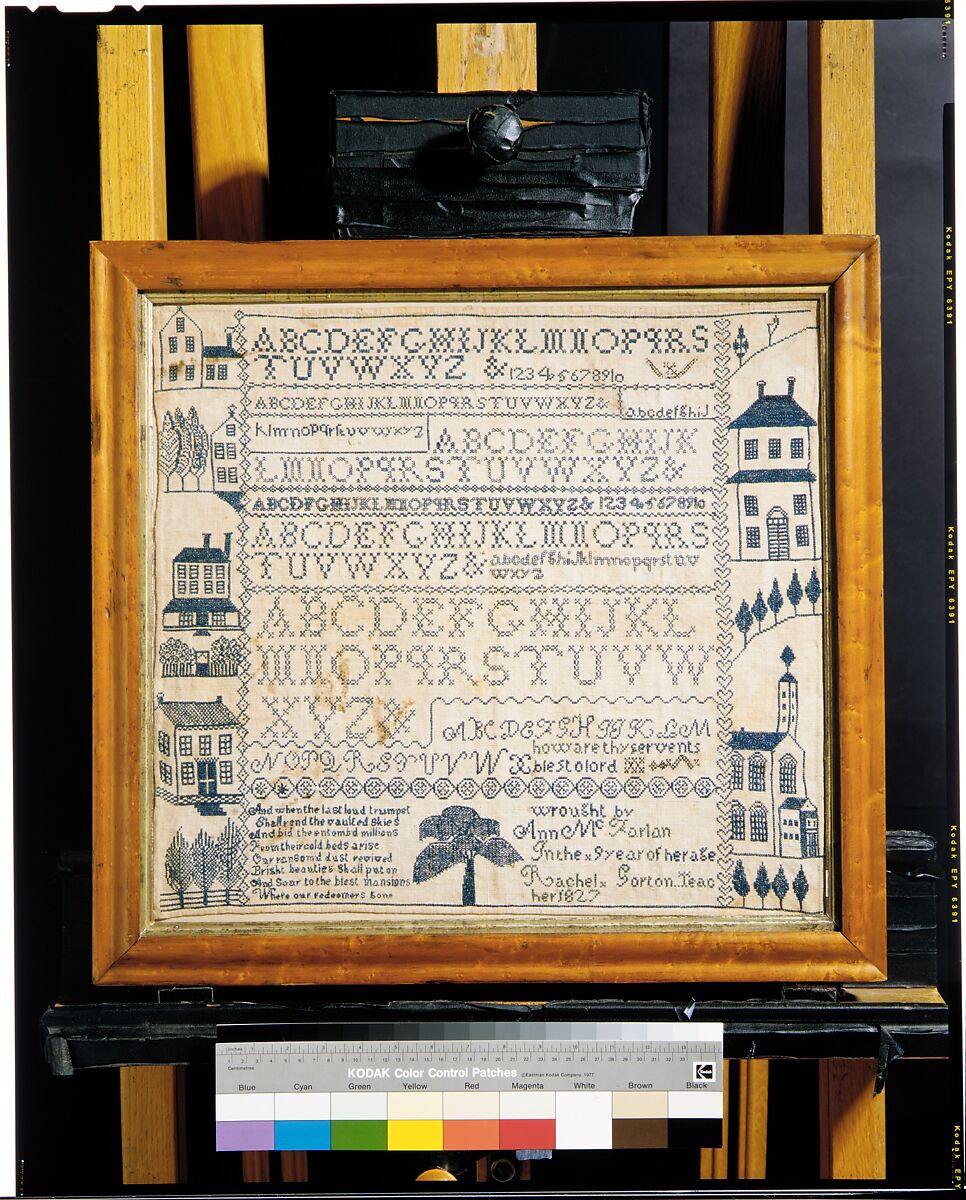 ABCDEFGHIJKLMNOPqRS
TUVWXYZ & 12345678910
ABCDEFGHIJKLMNOPqRSTUVWXYZ&
abcdefghiJ
KlmnopqrstuvwxyZ
ABCDEFGHIJK
LMNOPqRSTUVWXYZ&
ABCDFGHIJKLMNOPqRSTUVWXYZ& 12345678910
ABCDEFGHIJKLMNOPqRS
TUVWXYZ& abcdefghiJklmnopqrstuv
wxyz
ABCDEFGHIJKL
MNOPqRSTUVW
XYZ&
ABCDEFGHIJKLM
how are thy servents
NOPQRSTUVW X blest o lord
And when the last loud trumpet
Shall rend the vaulted skies
And bid the entombd millions
From their cold beds arise
Our ransomd dust revived
Bright beauties Shall put on
And Soar to the blest mansions
Where our redeemers gone
wrought by
Ann Mc Farlan
In the x 9 year of her age
Rachel x Gorton. Teac
her 1827
Inches 1 2 3 4 5 6 7 8 9 10 11 12 13
Centimetres
KODAK Color Control Patches ©Eastman Kodak Company, 1977
Kodak
Blue Cyan Green Yellow Red Magenta White Brown Black
6391
Kodak EPY 6391
Kodak EPY 6391
Kodak EPY 6391
Kodak EPY